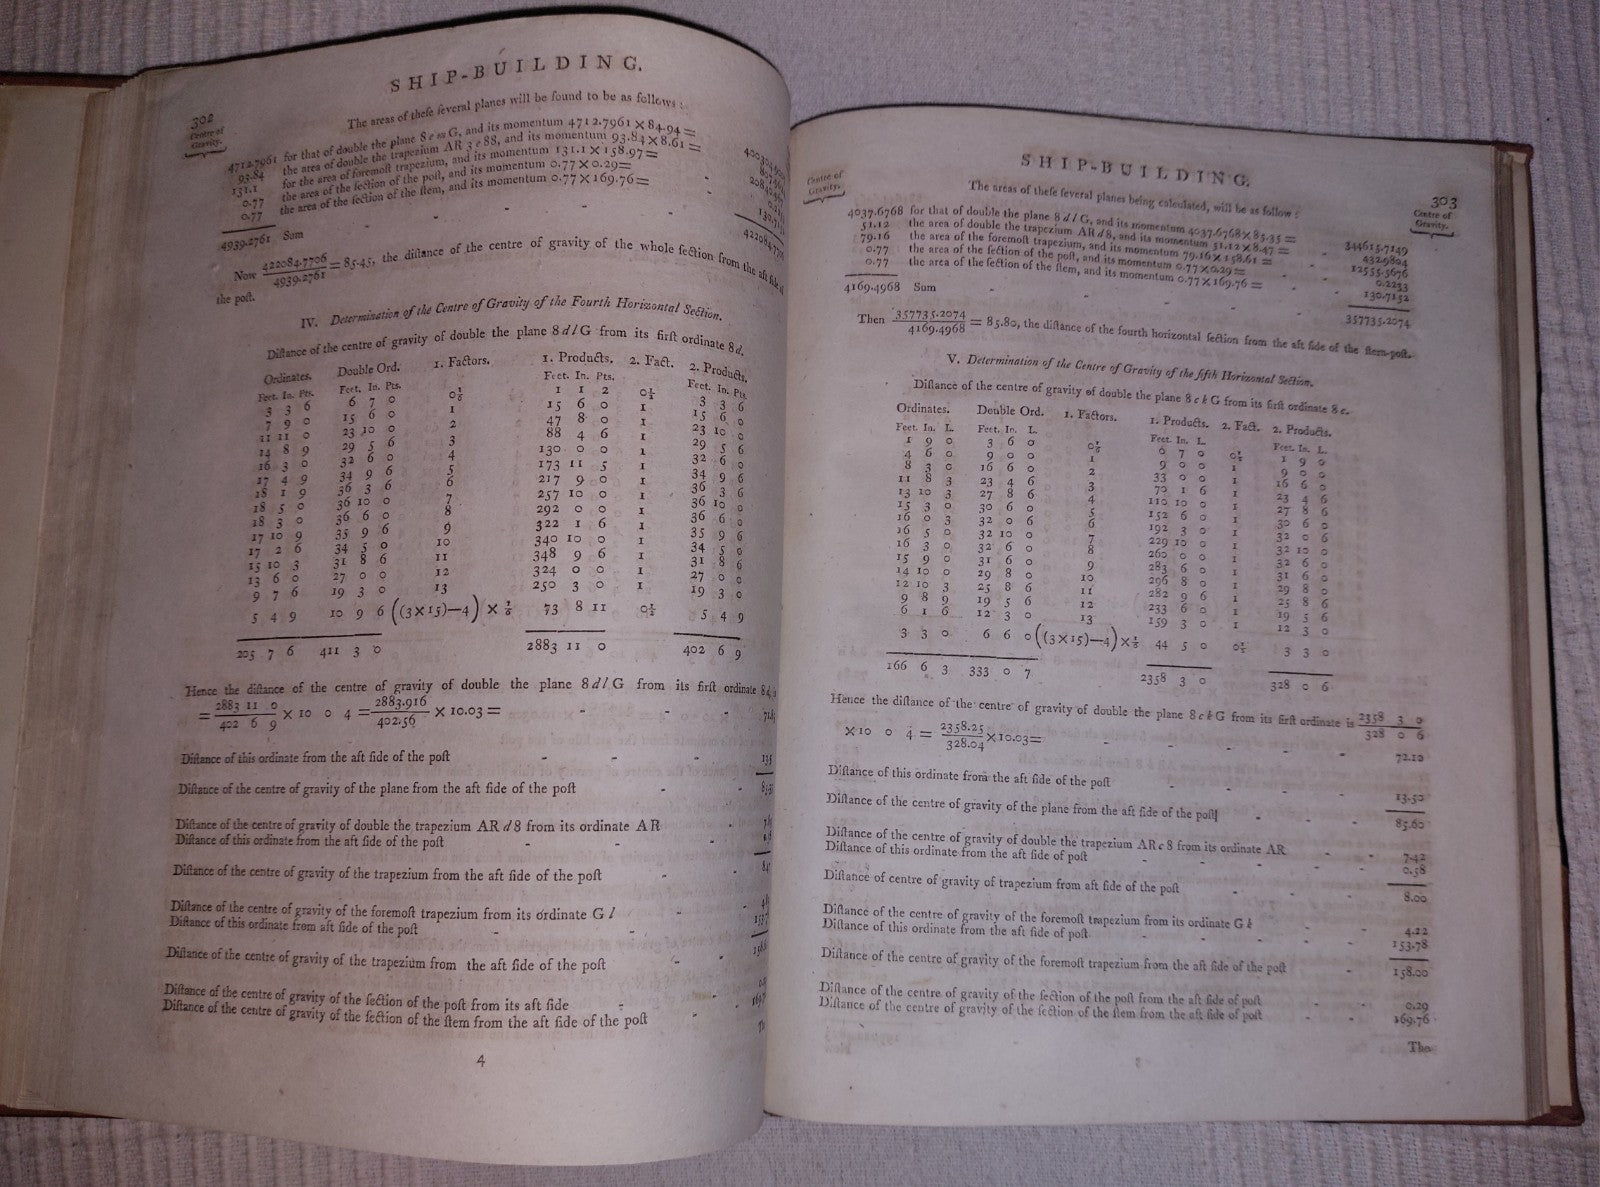 SHIP-BUILDING.
302
Centre of
Gravity.
The areas of theſe ſeveral planes will be found to be as follows:
4712.7961 for that of double the plane 8 e m G, and its momentum 4712.7961 × 84.94 =
93.84 the area of double the trapezium AR 3 e 88, and its momentum 93.84 × 8.61 =
131.1 for the area of foremoſt trapezium, and its momentum 131.1 × 158.97 =
0.77 the area of the ſection of the poſt, and its momentum 0.77 × 0.29=
0.77 the area of the ſection of the ſtem, and its momentum 0.77 × 169.76=
4939.2761 Sum 422084.7706
Now 422084.7706 / 4939.2761 = 85.45, the diſtance of the centre of gravity of the whole ſection from the aft ſide of
the poſt.
IV. Determination of the Centre of Gravity of the Fourth Horizontal Section.
Diſtance of the centre of gravity of double the plane 8 d l G from its firſt ordinate 8 d.
Ordinates. Double Ord. 1. Factors. 1. Products. 2. Fact. 2. Products.
Feet. In. Pts. Feet. In. Pts. Feet. In. Pts. Feet. In. Pts.
3 3 6 6 7 0 0⅙ 1 1 2 0½ 3 3 6
7 9 0 15 6 0 1 15 6 0 1 15 6 0
11 11 0 23 10 0 2 47 8 0 1 23 10 0
14 8 9 29 5 6 3 88 4 6 1 29 5 6
16 3 0 32 6 0 4 130 0 0 1 32 6 0
17 4 9 34 9 6 5 173 11 5 1 34 9 6
18 1 9 36 3 6 6 217 9 0 1 36 3 6
18 5 0 36 10 0 7 257 10 0 1 36 10 0
18 3 0 36 6 0 8 292 0 0 1 36 6 0
17 10 9 35 9 6 9 322 1 6 1 35 9 6
17 2 6 34 5 0 10 340 10 0 1 34 5 0
15 10 3 31 8 6 11 348 9 6 1 31 8 6
13 6 0 27 0 0 12 324 0 0 1 27 0 0
9 7 6 19 3 0 13 250 3 0 1 19 3 0
5 4 9 10 9 6 ((3×15)—4) × ⅙ 73 8 11 0½ 5 4 9
205 7 6 411 3 0 2883 11 0 402 6 9
Hence the diſtance of the centre of gravity of double the plane 8 d l G from its firſt ordinate 8 d, is
= 2883 11 0 / 402 6 9 × 10 0 4 = 2883.916 / 402.56 × 10.03 =
Diſtance of this ordinate from the aft ſide of the poſt
Diſtance of the centre of gravity of the plane from the aft ſide of the poſt
Diſtance of the centre of gravity of double the trapezium AR d 8 from its ordinate AR
Diſtance of this ordinate from the aft ſide of the poſt
Diſtance of the centre of gravity of the trapezium from the aft ſide of the poſt
Diſtance of the centre of gravity of the foremoſt trapezium from its ordinate G l
Diſtance of this ordinate from aft ſide of the poſt
Diſtance of the centre of gravity of the trapezium from the aft ſide of the poſt
Diſtance of the centre of gravity of the ſection of the poſt from its aft ſide
Diſtance of the centre of gravity of the ſection of the ſtem from the aft ſide of the poſt
4
SHIP-BUILDING.
303
Centre of
Gravity.
Centre of
Gravity.
The areas of theſe ſeveral planes being calculated, will be as follow:
4037.6768 for that of double the plane 8 d l G, and its momentum 4037.6768 × 85.35 = 344615.7149
51.12 the area of double the trapezium AR d 8, and its momentum 51.12 × 8.47 = 432.9804
79.16 the area of the foremoſt trapezium, and its momentum 79.16 × 158.61 = 12555.5676
0.77 the area of the ſection of the poſt, and its momentum 0.77×0.29= 0.2233
0.77 the area of the ſection of the ſtem, and its momentum 0.77×169.76 = 130.7152
4169.4968 Sum 357735.2074
Then 357735.2074 / 4169.4968 = 85.80, the diſtance of the fourth horizontal ſection from the aft ſide of the ſtern-poſt.
V. Determination of the Centre of Gravity of the fifth Horizontal Section.
Diſtance of the centre of gravity of double the plane 8 c k G from its firſt ordinate 8 c.
Ordinates. Double Ord. 1. Factors. 1. Products. 2. Fact. 2. Products.
Feet. In. L. Feet. In. L. Feet. In. L. Feet. In. L.
1 9 0 3 6 0 0⅙ 0 7 0 0½ 1 9 0
4 6 0 9 0 0 1 9 0 0 1 9 0 0
8 3 0 16 6 0 2 33 0 0 1 16 6 0
11 8 3 23 4 6 3 70 1 6 1 23 4 6
13 10 3 27 8 6 4 110 10 0 1 27 8 6
15 3 0 30 6 0 5 152 6 0 1 30 6 0
16 0 3 32 0 6 6 192 3 0 1 32 0 6
16 5 0 32 10 0 7 229 10 0 1 32 10 0
16 3 0 32 6 0 8 260 0 0 1 32 6 0
15 9 0 31 6 0 9 283 6 0 1 31 6 0
14 10 0 29 8 0 10 296 8 0 1 29 8 0
12 10 3 25 8 6 11 282 9 6 1 25 8 6
9 8 9 19 5 6 12 233 6 0 1 19 5 6
6 1 6 12 3 0 13 159 3 0 1 12 3 0
3 3 0 6 6 0 ((3×15)—4)×⅙ 44 5 0 0½ 3 3 0
166 6 3 333 0 7 2358 3 0 328 0 6
Hence the diſtance of the centre of gravity of double the plane 8 c k G from its firſt ordinate is 2358 3 0 / 328 0 6
×10 0 4 = 2358.25 / 328.04 ×10.03= 72.10
Diſtance of this ordinate from the aft ſide of the poſt 13.50
Diſtance of the centre of gravity of the plane from the aft ſide of the poſt 85.60
Diſtance of the centre of gravity of double the trapezium AR c 8 from its ordinate AR 7.42
Diſtance of this ordinate from the aft ſide of poſt 0.58
Diſtance of centre of gravity of trapezium from aft ſide of the poſt 8.00
Diſtance of the centre of gravity of the foremoſt trapezium from its ordinate G k 4.22
Diſtance of this ordinate from the aft ſide of poſt 153.78
Diſtance of the centre of gravity of the foremoſt trapezium from the aft ſide of the poſt 158.00
Diſtance of the centre of gravity of the ſection of the poſt from the aft ſide of poſt 0.29
Diſtance of the centre of gravity of the ſection of the ſtem from the aft ſide of poſt 169.76
The